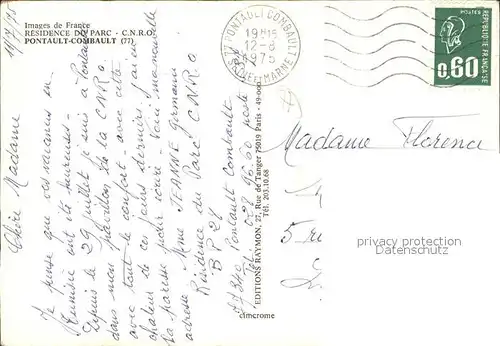 Images de France
RESIDENCE DU PARC - C.N.R.O.
PONTAULT-COMBAULT (77)
Chère Madame
Je pense que vos vacances en
Tunisie ont été heureuses.
Depuis le 29 juillet je suis à Pontault
dans mon pavillon de la C.N.R.O.
avec tout le confort - avec cette
chaleur de ces jours derniers j'ai eu
la paresse pour écrire. Voici ma nouvelle
adresse Mme JEANNE Germaine
Résidence du Parc CNRO
BP 26
77340 Pontault Combault
Tél. 028 95 60 poste
EDITIONS RAYMON, 27, Rue de Tanger 75019 Paris - 49-00
Tél. 203.10.68
cimcrome
PONTAULT-COMBAULT
19H15
12-8
1975
SEINE ET MARNE
REPUBLIQUE FRANÇAISE
0,60
Madame Florence
5 rue
photo protected by copyright
www.delcampe.net